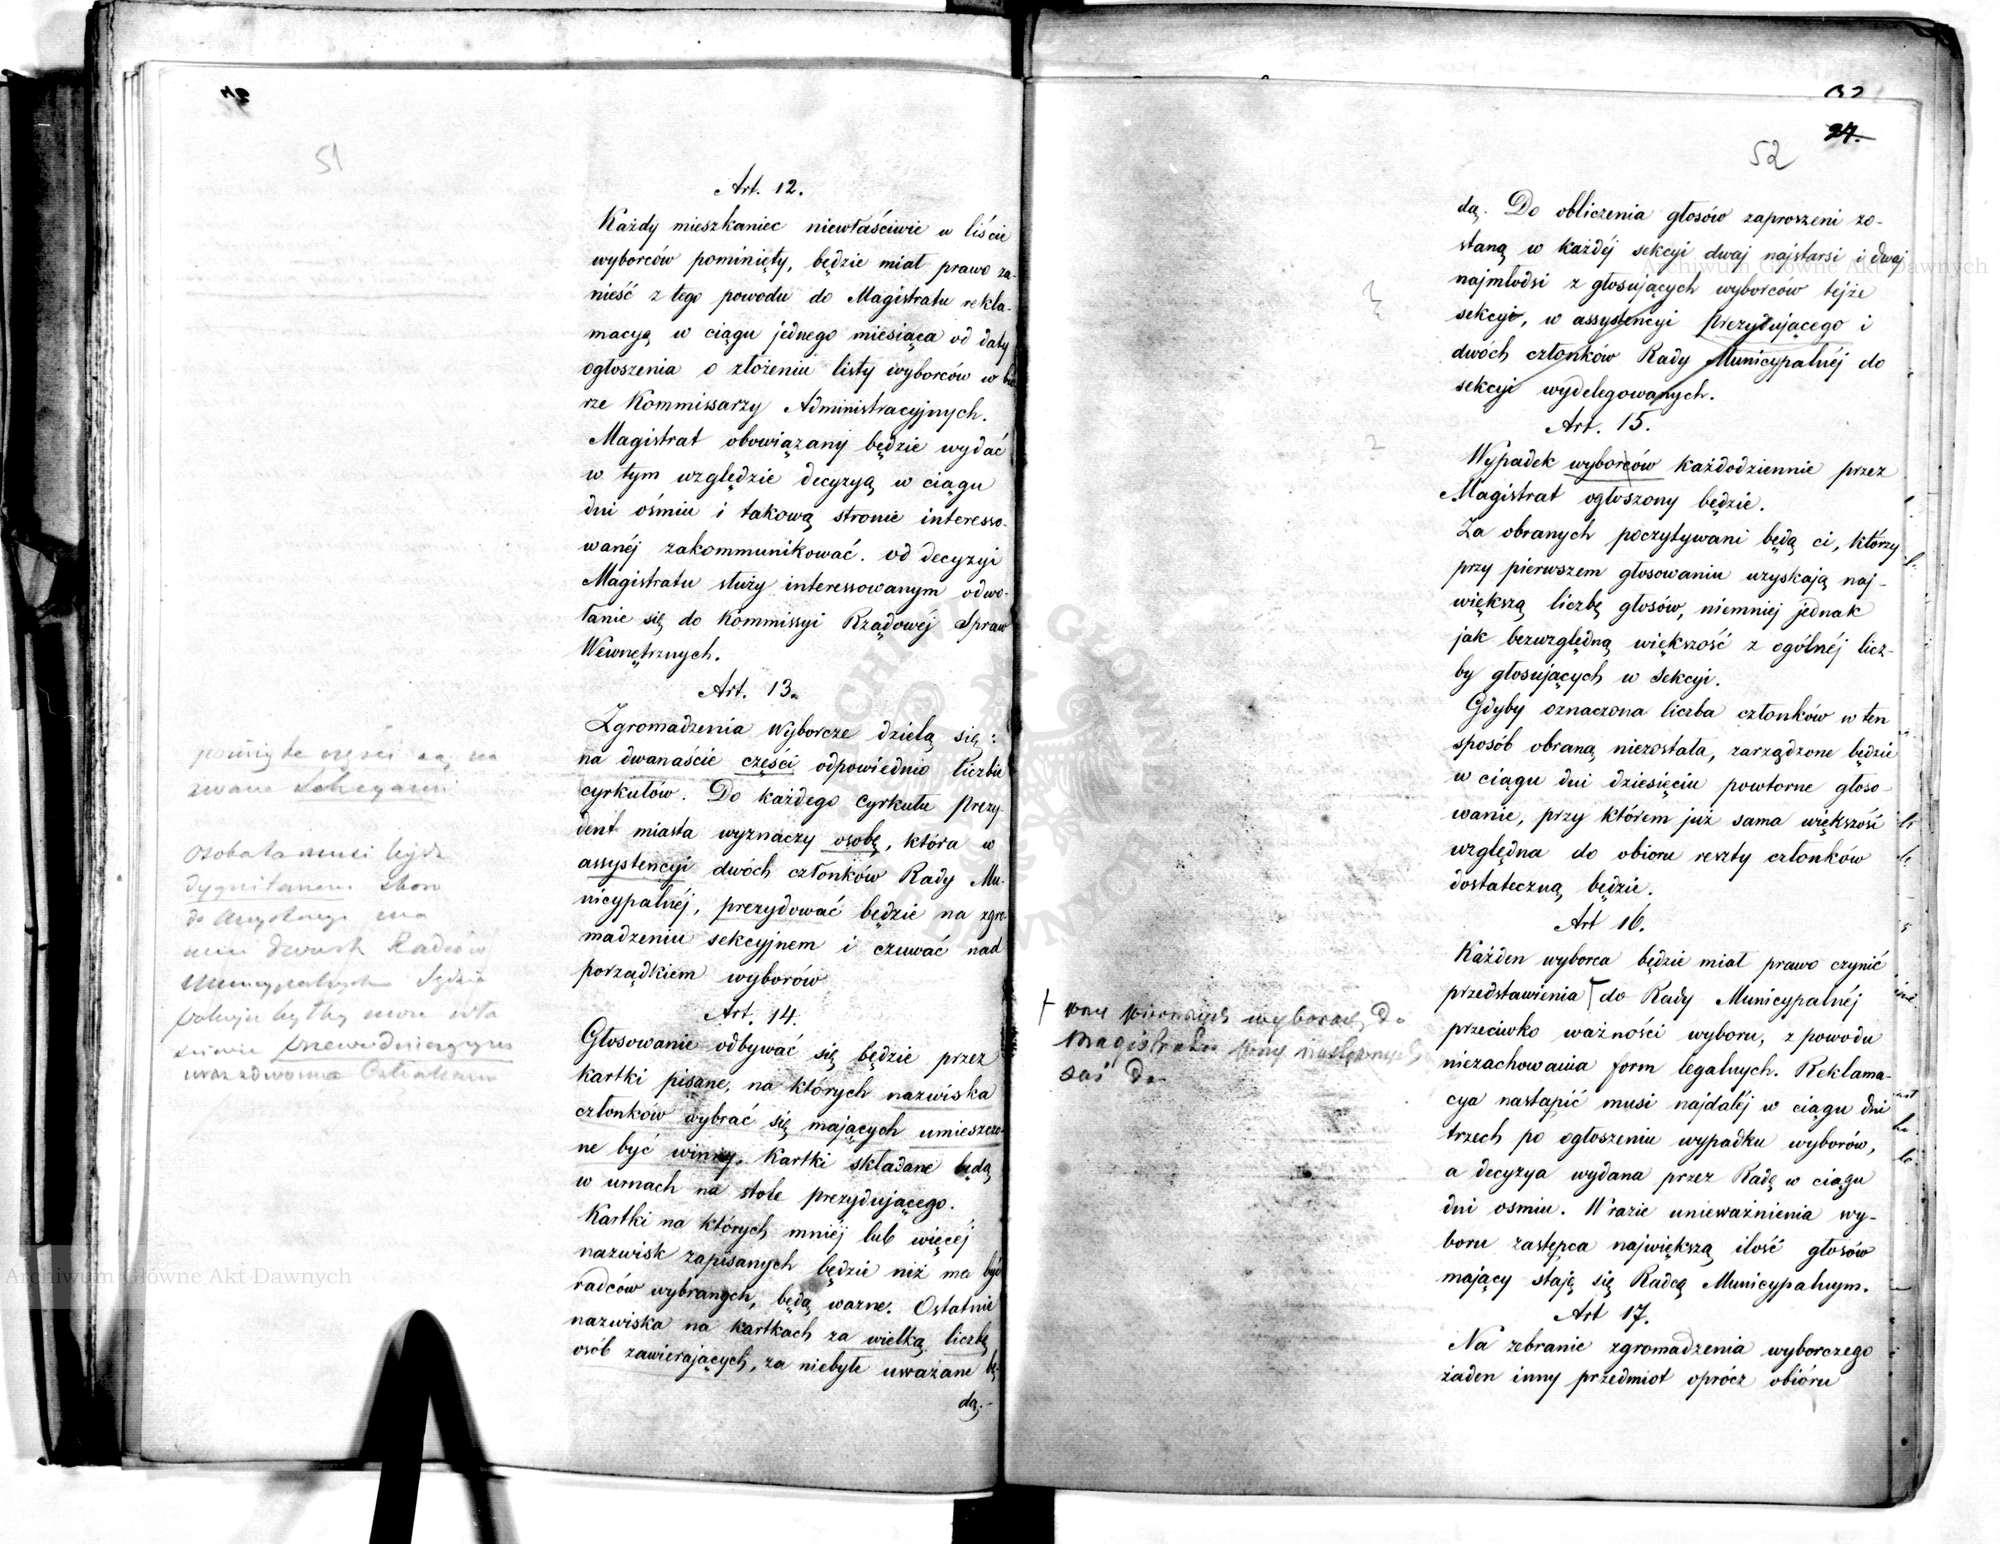 51
Art. 12.
Każdy mieszkaniec niewłaściwie w liście
wyborców pominięty, będzie miał prawo za-
nieść z tego powodu do Magistratu rekla-
macyą w ciągu jednego miesiąca od daty
ogłoszenia o złożeniu listy wyborców w biu
rze Kommissarzy Administracyjnych.
Magistrat obowiązany będzie wydać
w tym względzie decyzyą w ciągu
dni ośmiu i takową stronie interesso-
wanéj zakommunikować. od decyzyi
Magistratu służy interessowanym odwo-
łanie się do Kommissyi Rządowéj Spraw
Wewnętrznych.
Art. 13.
Zgromadzenia Wyborcze dzielą się:
na dwanaście części odpowiednio liczbie
cyrkułów. Do każdego cyrkułu Prezy
dent miasta wyznaczy osobę, która w
assystencyi dwóch członków Rady Mu-
nicypalnéj, prezydować będzie na zgro-
madzeniu sekcyjnem i czuwać nad
porządkiem wyborów
Art. 14.
Głosowanie odbywać się będzie przez
kartki pisane, na których nazwiska
członków wybrać się mających umieszczo-
ne być winny. Kartki składane będą
w urnach na stole prezydującego.
Kartki na których mniéj lub więcéj
nazwisk zapisanych będzie niż ma być
radców wybranych, będą ważne. Ostatnie
nazwiska na kartkach za wielką liczbę
osób zawierających, za niebyłe uważane bę
dą.-
zwane Sekcyami
osoba ta musi być
dwóch Radców
Municypalnych
52
27.
52
dą. Do obliczenia głosów zaproszeni zo-
staną w każdéj sekcyi dwaj najstarsi i dwaj
najmłodsi z głosujących wyborców tejże
sekcyi, w assystencyi prezydującego i
dwóch członków Rady Municypalnéj do
sekcyi wydelegowanych.
Art. 15.
Wypadek wyborców każdodziennie przez
Magistrat ogłoszony będzie.
Za obranych poczytywani będą ci, którzy
przy pierwszem głosowaniu uzyskają naj-
większą liczbę głosów, niemniéj jednak
jak bezwzględną większość z ogólnéj licz-
by głosujących w Sekcyi.
Gdyby oznaczona liczba członków w ten
sposób obraną niezostała, zarządzone będzie
w ciągu dni dziesięciu powtorne głoso-
wanie, przy którem już sama większość
względna do obioru reszty członków
dostateczną będzie.
Art 16.
Każden wyborca będzie miał prawo czynić
przedstawienia do Rady Municypalnéj
przeciwko ważności wyboru, z powodu
niezachowania form legalnych. Reklama-
cya nastąpić musi najdaléj w ciągu dni
trzech po ogłoszeniu wypadku wyborów,
a decyzya wydana przez Radę w ciągu
dni osmiu. W razie unieważnienia wy-
boru zastępca największą ilość głosów
mający stają się Radcą Municypalnym.
Art 17.
Na zebranie zgromadzenia wyborczego
żaden inny przedmiot oprócz obióru
przy pierwszych wyborach do
Magistratu przy następnych
zaś do
Archiwum Główne Akt Dawnych
Archiwum Główne Akt Dawnych
ARCHIWUM GŁÓWNE AKT DAWNYCH